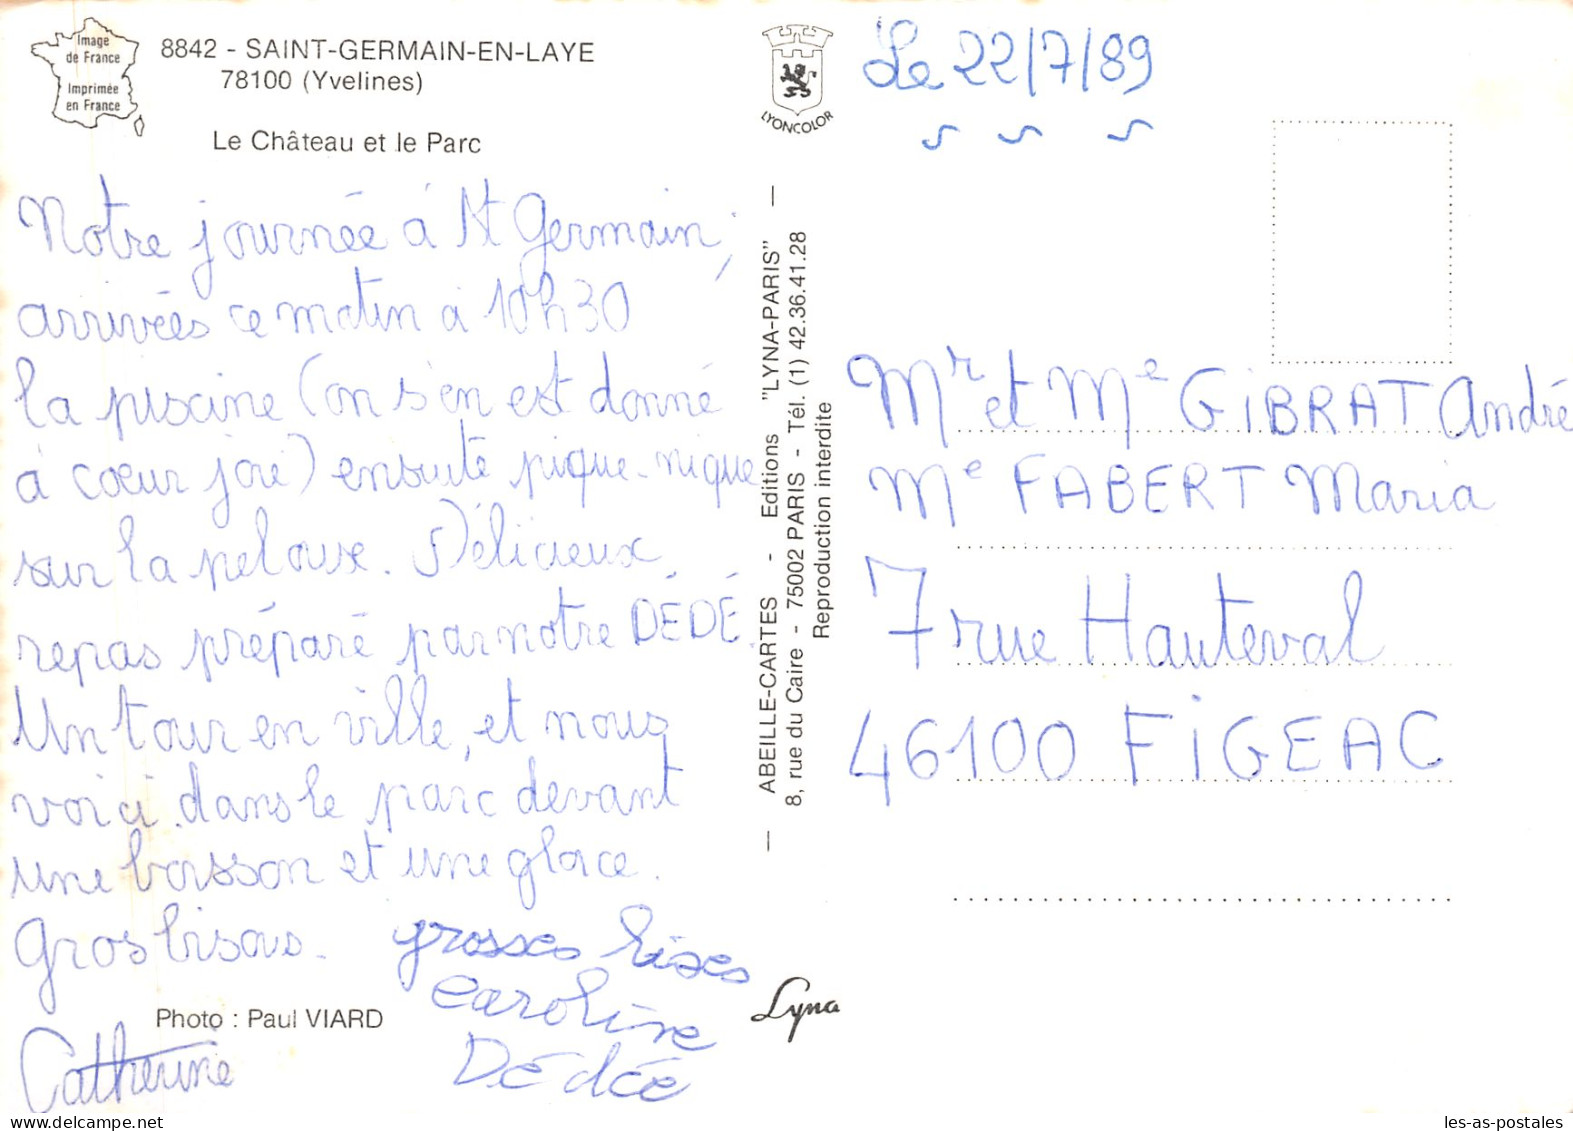 Image
de France
Imprimée
en France
8842 - SAINT-GERMAIN-EN-LAYE
78100 (Yvelines)
Le Château et le Parc
Notre journée à St Germain,
arrivées ce matin à 10h30
la piscine (on s'en est donné
à coeur joie) ensuite pique-nique
sur la pelouse. Délicieux
repas préparé par notre DÉDÉ.
Un tour en ville, et nous
voici dans le parc devant
une boisson et une glace.
Gros bisous.
grosses bises
Caroline
Dédée
Photo : Paul VIARD
Catherine
LYONCOLOR
ABEILLE-CARTES - Editions "LYNA-PARIS"
8, rue du Caire - 75002 PARIS - Tél. (1) 42.36.41.28
Reproduction interdite
Lyna
Le 22/7/89
Mr et Me GiBRAT André
Me FABERT Maria
7 rue Hauteval
46100 FiGEAC
les-as-postales
delcampe.net